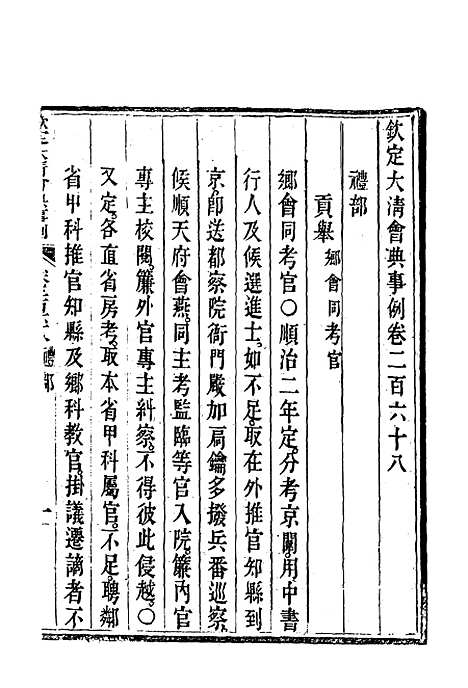 欽定大清會典事例卷二百六十八
禮部
貢舉 鄉會同考官
鄉會同考官〇順治二年定。分考京闈。用中書
行人及候選進士。如不足。取在外推官知縣到
京。卽送都察院衙門嚴加扃鑰多撥兵番巡察。
候順天府會燕。同主考監臨等官入院。簾內官
專主校閱。簾外官專主糾察。不得彼此侵越。〇
又定。各直省房考。取本省甲科屬官。不足。聘鄰
省甲科推官知縣及鄉科教官。掛議遷謫者不
欽定大清會典事例 禮部 一